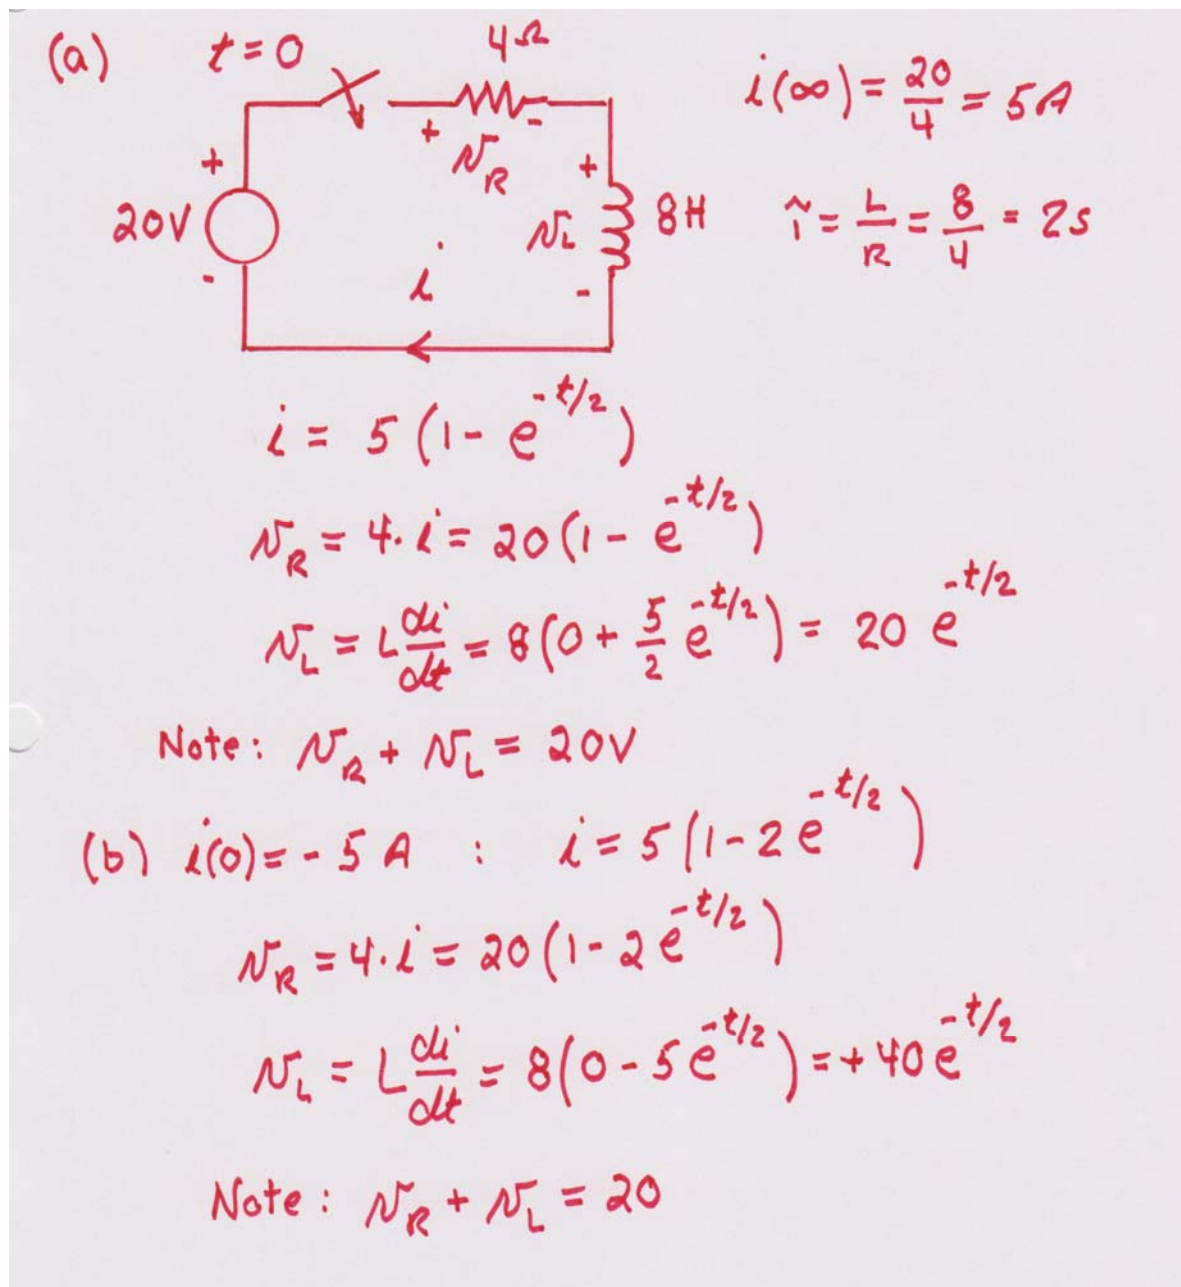 (a) t=0 4Ω
i(∞) = 20/4 = 5A
+ + v_R - +
20V v_L 8H
τ = L/R = 8/4 = 2s
- i -
i = 5(1 - e^{-t/2})
v_R = 4·i = 20(1 - e^{-t/2})
v_L = L di/dt = 8(0 + 5/2 e^{-t/2}) = 20 e^{-t/2}
Note: v_R + v_L = 20V
(b) i(0) = -5 A : i = 5(1-2e^{-t/2})
v_R = 4·i = 20(1-2e^{-t/2})
v_L = L di/dt = 8(0-5e^{-t/2}) = +40e^{-t/2}
Note: v_R + v_L = 20